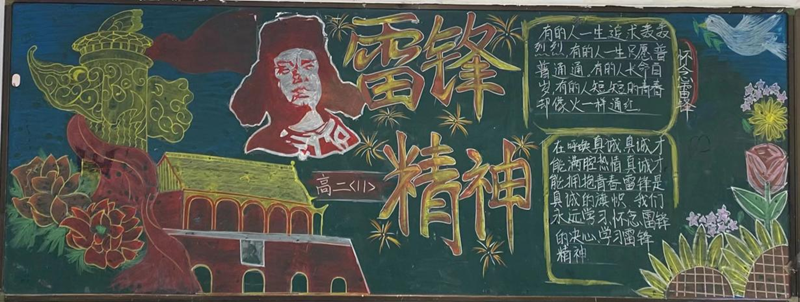 雷锋
精神
高二<1>
有的人一生追求轰轰
烈烈,有的人一生只愿普
普通通,有的人长命百
岁,有的人短短的青春
却像火一样通红
怀念雷锋
在呼唤真诚,真诚才
能满腔热情,真诚才
能拥抱青春,雷锋是
真诚的旗帜,我们
永远学习,怀念雷锋
的决心学习雷锋
精神